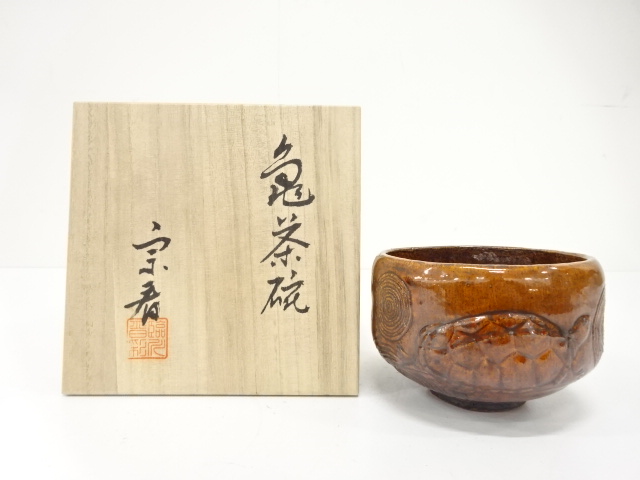 亀茶碗
宗春